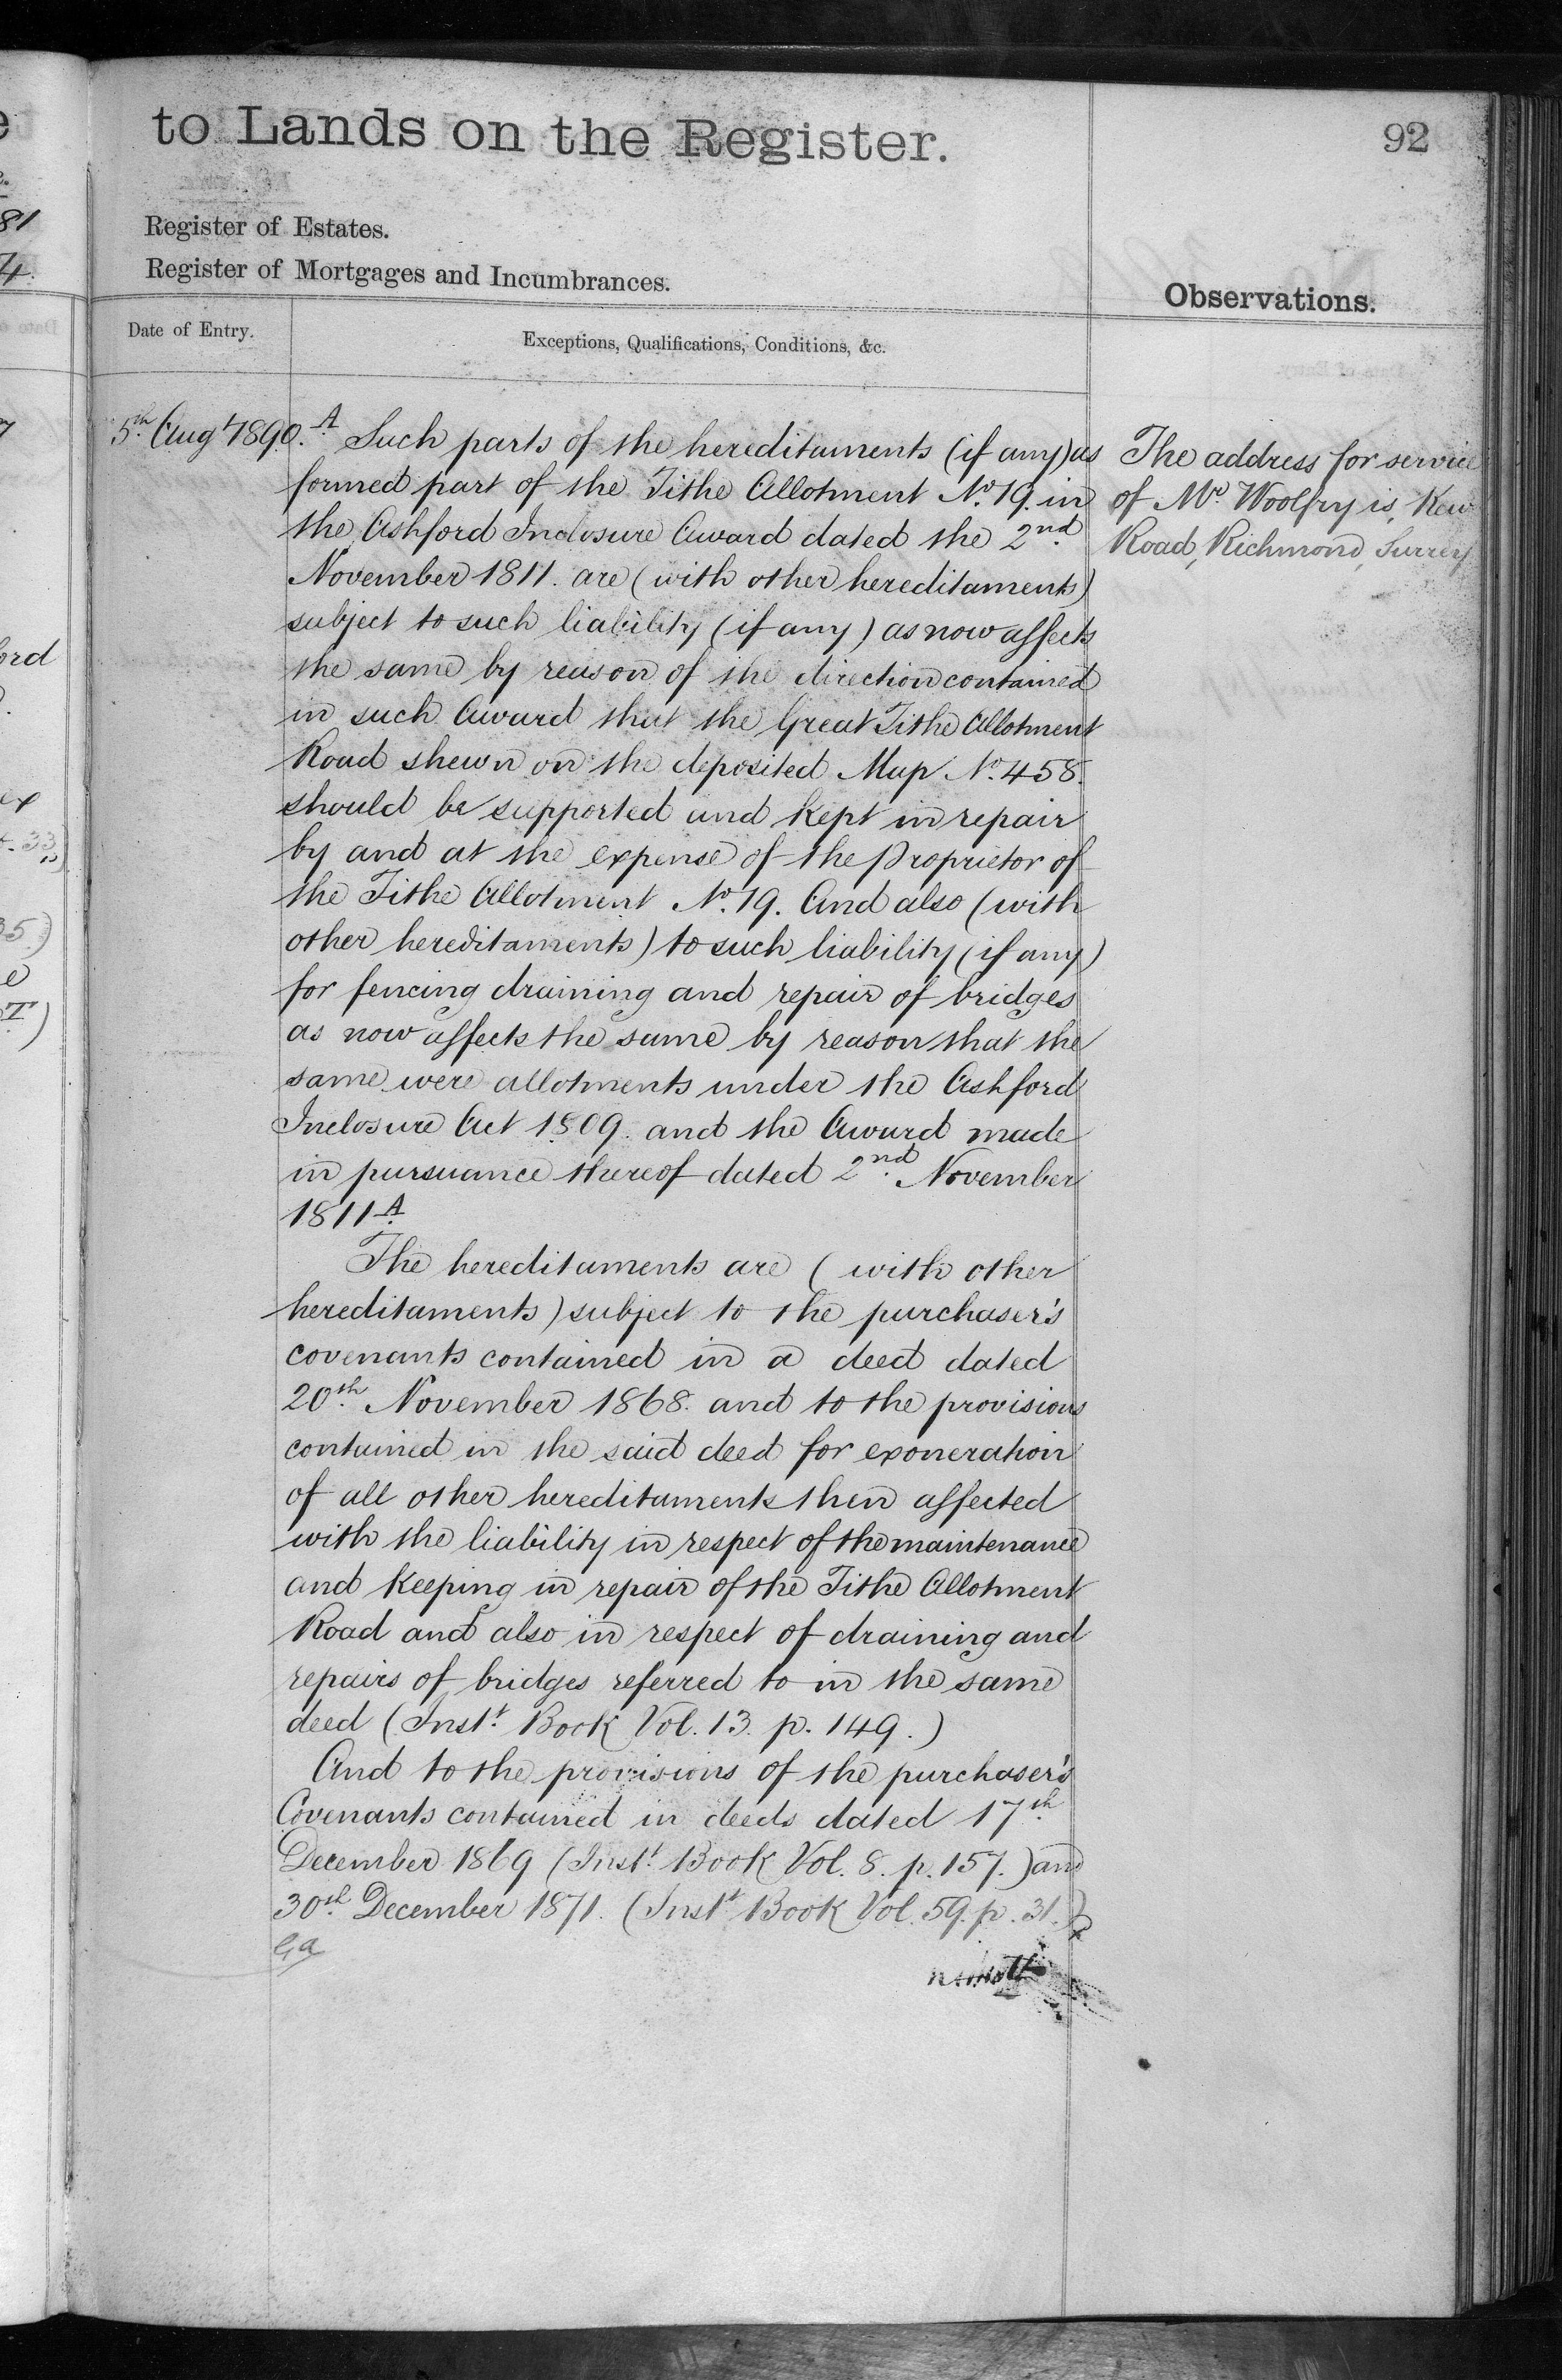 to Lands on the Register.
92
Register of Estates.
Register of Mortgages and Incumbrances.
Observations.
Date of Entry.
Exceptions, Qualifications, Conditions, &c.
5th Augt 1890.
A Such parts of the hereditaments (if any) as
formed part of the Tithe Allotment No. 19. in
the Ashford Inclosure Award dated the 2nd
November 1811. are (with other hereditaments)
subject to such liability (if any) as now affects
the same by reason of the direction contained
in such Award that the Great Tithe Allotment
Road shewn on the deposited Map No. 458.
should be supported and kept in repair
by and at the expense of the Proprietor of
the Tithe Allotment No. 19. And also (with
other hereditaments) to such liability (if any)
for fencing draining and repair of bridges
as now affects the same by reason that the
same were allotments under the Ashford
Inclosure Act 1809. and the Award made
in pursuance thereof dated 2nd November
1811 A
The hereditaments are (with other
hereditaments) subject to the purchaser's
covenants contained in a deed dated
20th November 1868. and to the provisions
contained in the said deed for exoneration
of all other hereditaments then affected
with the liability in respect of the maintenance
and keeping in repair of the Tithe Allotment
Road and also in respect of draining and
repairs of bridges referred to in the same
deed (Inst. Book Vol. 13. p. 149.)
And to the provisions of the purchaser's
Covenants contained in deeds dated 17th
December 1869 (Inst. Book Vol. 8. p. 157.) and
30th December 1871. (Inst. Book Vol. 59. p. 31.)
The address for service
of Mrs. Woolfry is, Kew
Road, Richmond, Surrey